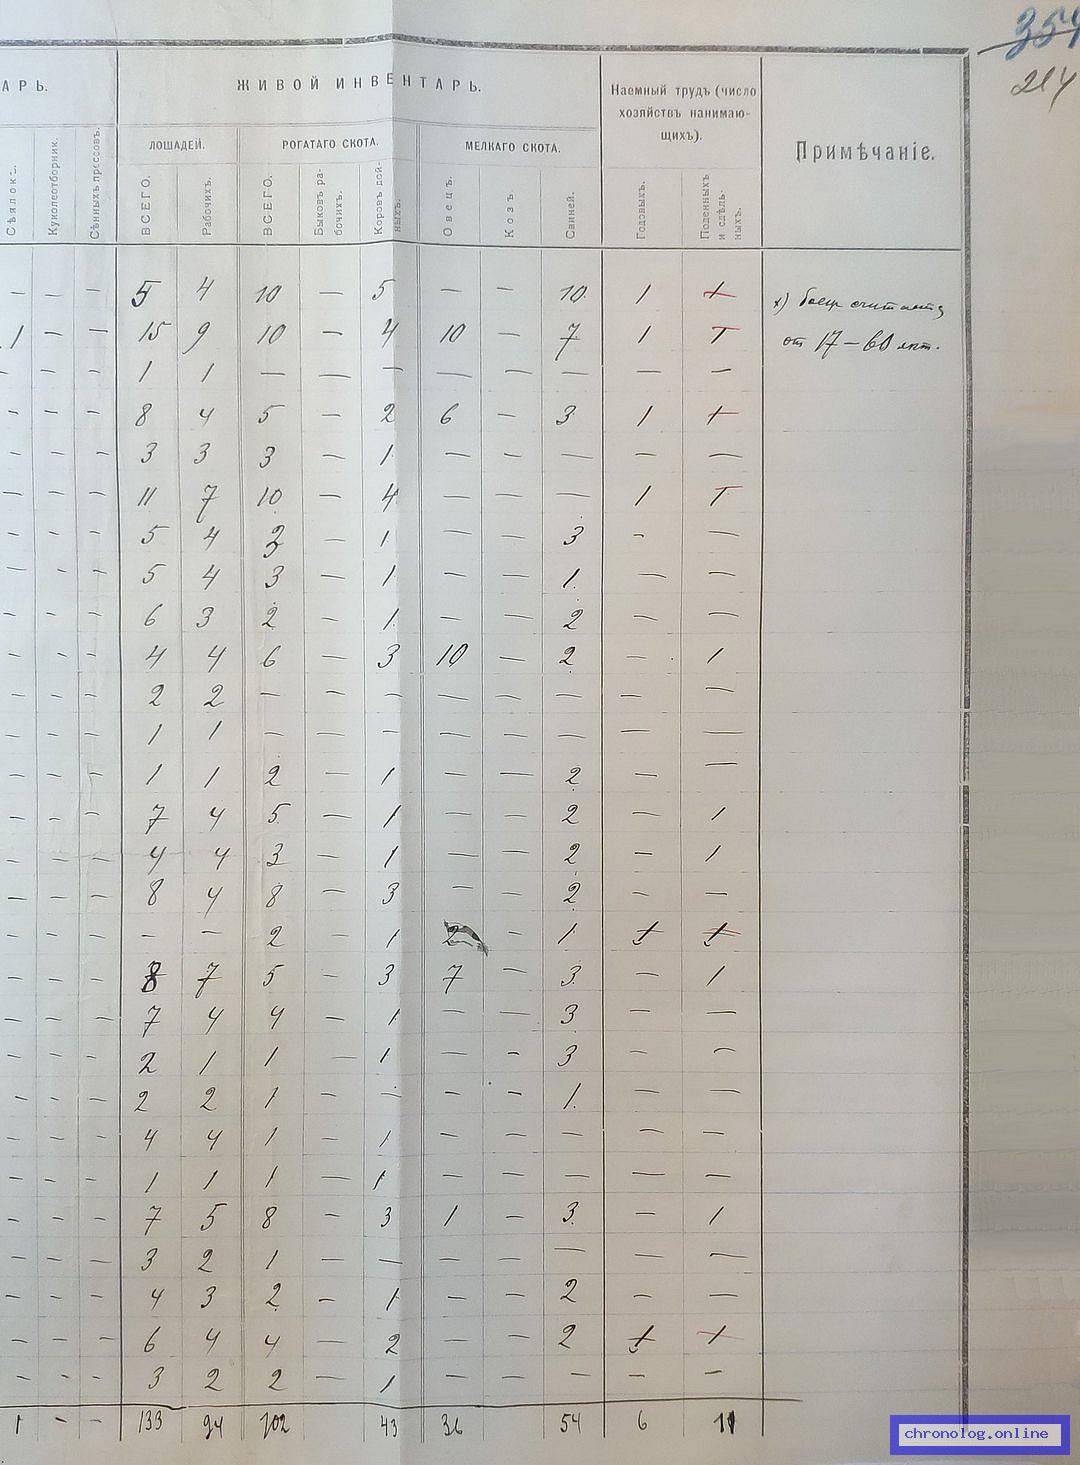 214
АРЬ.
ЖИВОЙ ИНВЕНТАРЬ.
Наемный трудъ (число
хозяйствъ нанимаю-
щихъ).
Примѣчаніе.
ЛОШАДЕЙ.
РОГАТАГО СКОТА.
МЕЛКАГО СКОТА.
Сѣялокъ.
Куколеотборник.
Сѣнныхъ прессовъ.
ВСЕГО.
Рабочихъ.
ВСЕГО.
Быковъ ра-
бочихъ.
Коровъ дой-
ныхъ.
Овецъ.
Козъ
Свиней.
Годовыхъ.
Поденныхъ
и сдѣль-
ныхъ.
— — — 5 4 10 — 5 — — 10 1 +
х)
1 — — 15 9 10 — 4 10 — 7 1 т
от 17—60 лѣт.
— — — 1 1 — — — — — — — —
— — — 8 4 5 — 2 6 — 3 1 +
— — — 3 3 3 — 1 — — — — —
— — — 11 7 10 — 4 — — — 1 т
— — — 5 4 — 1 — — 3 — —
— — — 5 4 3 — 1 — — 1 — —
— — — 6 3 2 — 1 — — 2 — —
— — — 4 4 6 — 3 10 — 2 — 1
— — — 2 2 — — — — — — — —
— — — 1 1 — — — — — — — —
— — — 1 1 2 — 1 — — 2 — —
— — — 7 4 5 — 1 — — 2 — 1
— — — 4 4 3 — 1 — — 2 — 1
— — — 8 4 8 — 3 — — 2 — —
— — — — — 2 — 1 2 — 1
— — — 8 7 5 — 3 7 — 3 — 1
— — — 7 4 4 — 1 — — 3 — —
— — — 2 1 1 — 1 — — 3 — —
— — — 2 2 1 — — — — 1 — —
— — — 4 4 1 — 1 — — — — —
— — — 1 1 1 — 1 — — — — —
— — — 7 5 8 — 3 1 — 3 — 1
— — — 3 2 1 — — — — — — —
— — — 4 3 2 — 1 — — 2 — —
— — — 6 4 4 — 2 — — 2
— — — 3 2 2 — 1 — — — — —
1 — — 133 94 102 43 36 54 6 11
chronolog.online